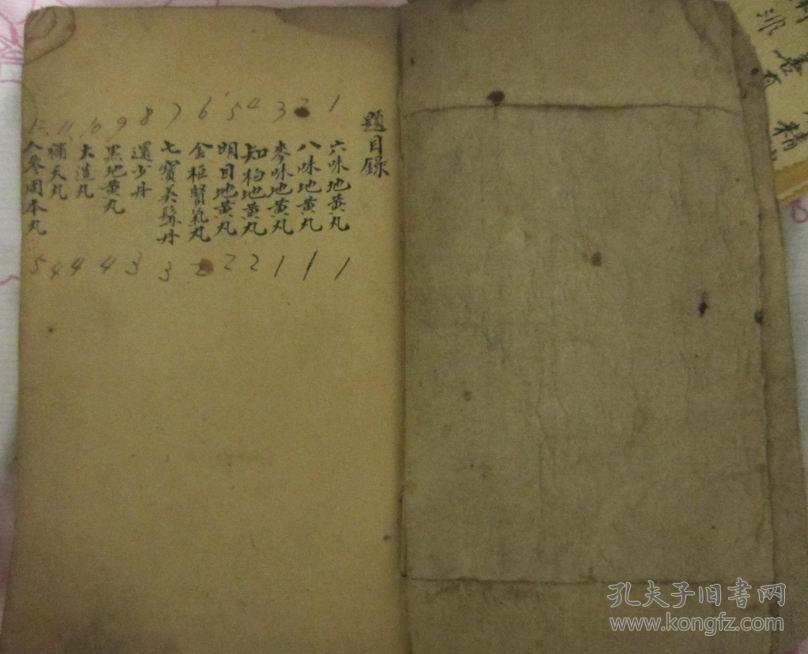 題目錄
1 六味地黄丸 1
2 八味地黄丸 1
3 麥味地黄丸 1
4 知柏地黄丸 2
5 明目地黄丸 2
6 金柜腎氣丸 2
7 七寶美髯丹 3
8 還少丹 3
9 黑地黄丸 4
10 大造丸 4
11 補天丸 4
12 人參固本丸 5
孔夫子旧书网
www.kongfz.com